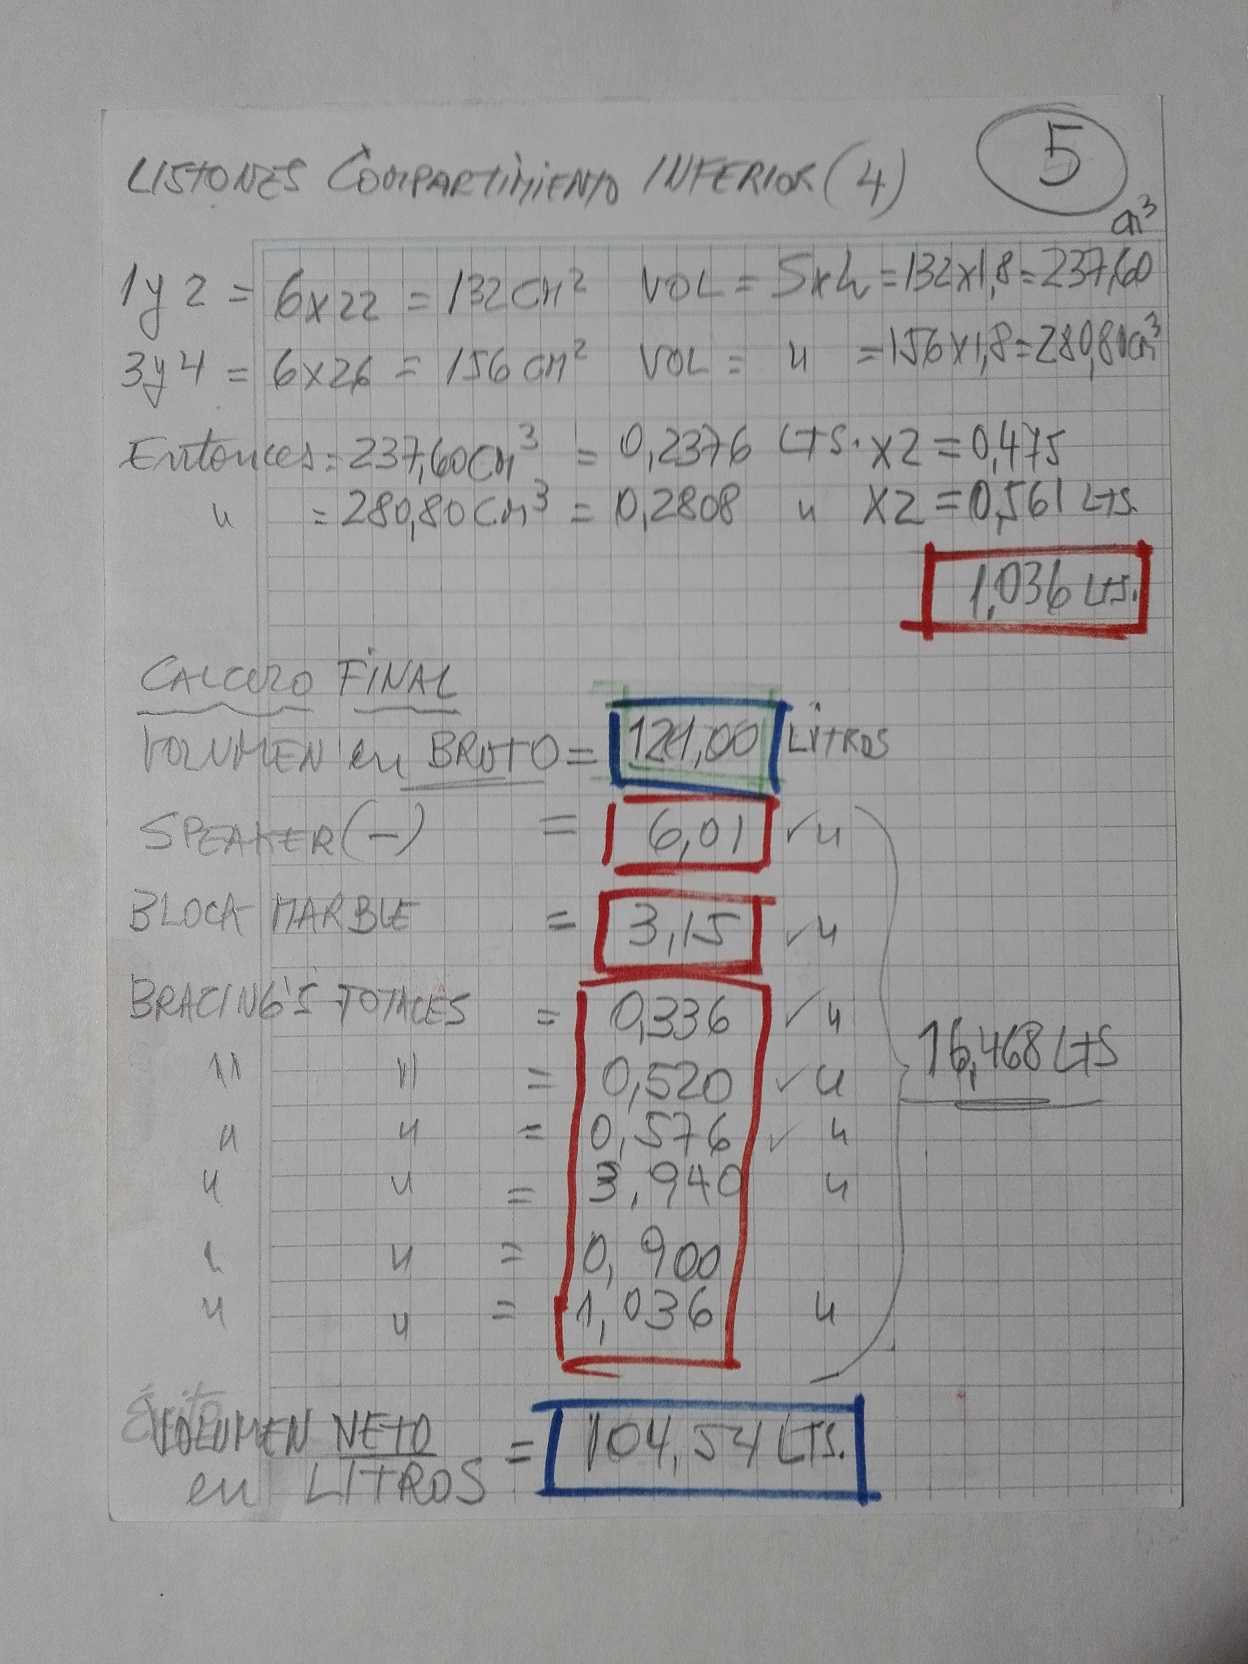 5
LISTONES COMPARTIMIENTO INFERIOR (4)
1 y 2 = 6x22 = 132 cm² VOL = Sxh = 132x1,8 = 237,60 cm³
3 y 4 = 6x26 = 156 cm² VOL = " = 156x1,8 = 280,80 cm³
Entonces = 237,60 cm³ = 0,2376 LTS. x2 = 0,475
" = 280,80 cm³ = 0,2808 " x2 = 0,561 LTS.
1,036 LTS.
CALCULO FINAL
VOLUMEN en BRUTO = 121,00 LITROS
SPEAKER (-) = 6,01 ✓ "
BLOCK MARBLE = 3,15 ✓ "
BRACING'S TOTALES = 0,336 ✓ "
" " = 0,520 ✓ "
16,468 LTS
" " = 0,576 ✓ "
" " = 3,940 "
" " = 0,900
" " = 1,036 "
VOLUMEN NETO
en LITROS = 104,54 LTS.